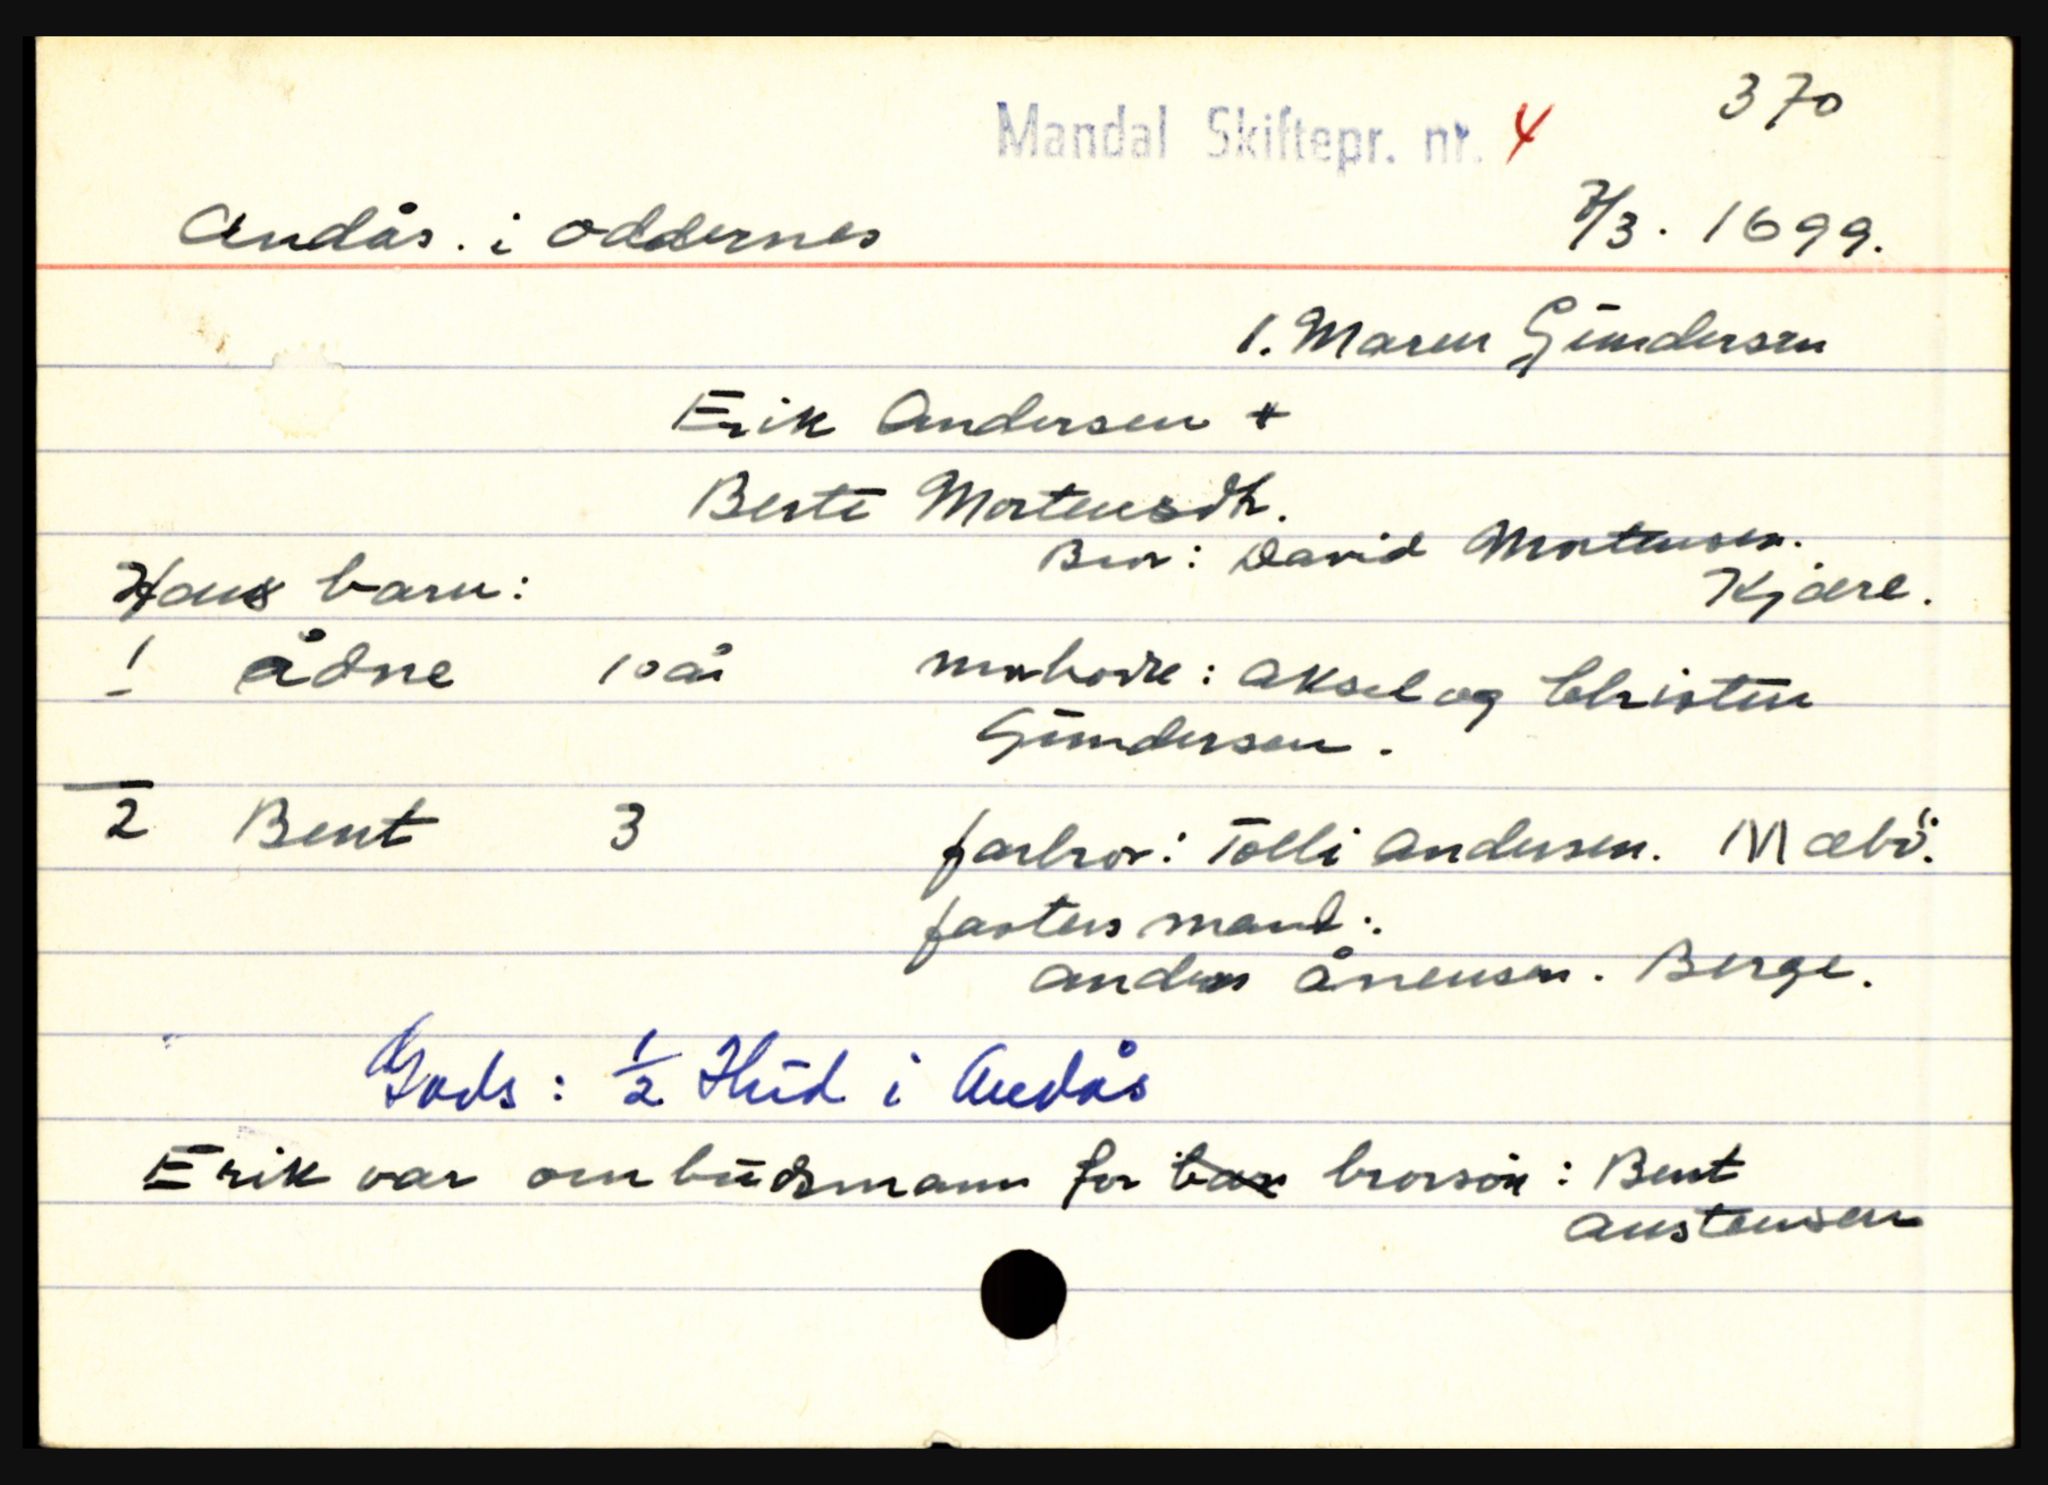 370
Mandal Skiftepr. nr. 4
Andås. i oddernes 7/3. 1699.
1. Maren Gundersen
Erik Andersen +
Berte Mortensdtr.
Bror: David Mortensen.
Kjære.
Hans barn:
1 ådne 10 år morbødre: Aksel og Christen
Gundersen.
2 Bent 3 farbror: Tolli Andersen. Mæbö.
fasters mand:
anders ånensen. Berge.
Gods: 1/2 Hud i Andås
Erik var ombudsmann for brorsön: Bent
austensen